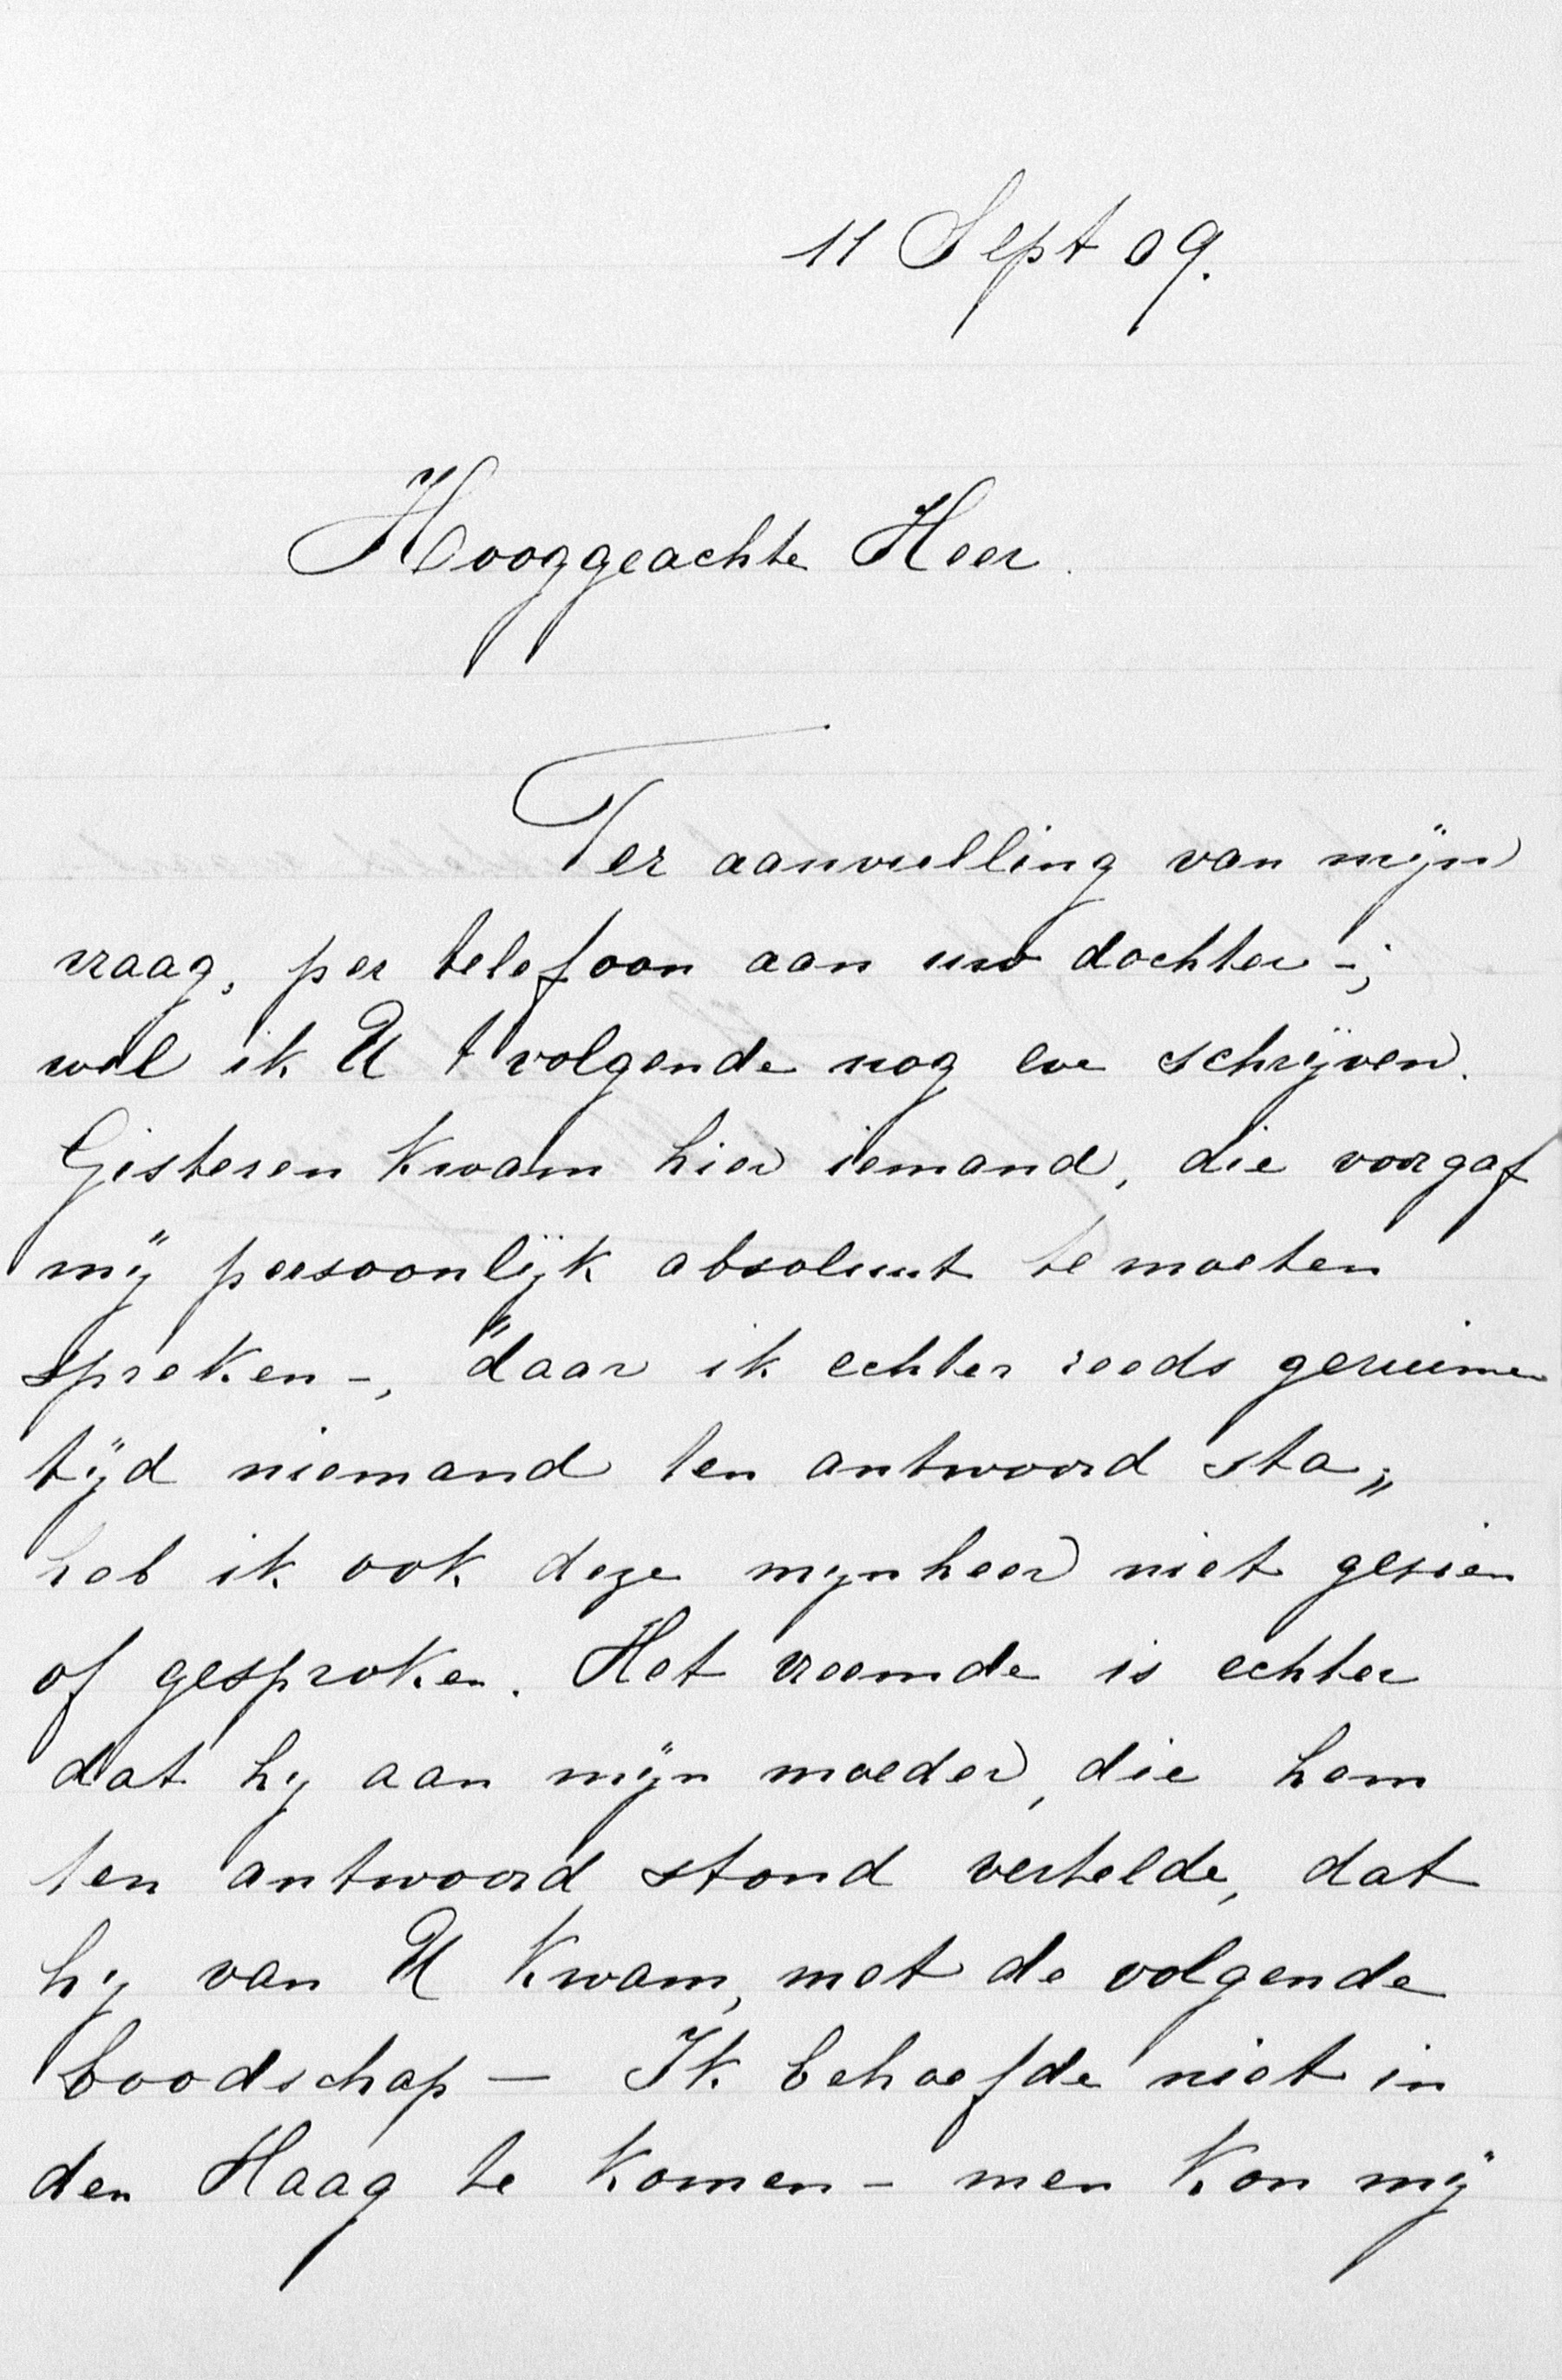 11 Sept 09.
Hooggeachte Heer.
Ter aanvulling van mijn
vraag, per telefoon aan uw dochter -;
wil ik U t volgende nog eve schrijven.
Gisteren kwam hier iemand, die voorgaf
mij persoonlijk absoluut te moeten
spreken -, daar ik echter reeds geruime
tijd niemand ten antwoord sta„
heb ik ook deze mynheer niet gezien
of gesproken. Het vreemde is echter
dat hy aan mijn moeder, die hem
ten antwoord stond vertelde, dat
hy van U kwam, met de volgende
boodschap — Ik behoefde niet in
den Haag te komen - men kon mij